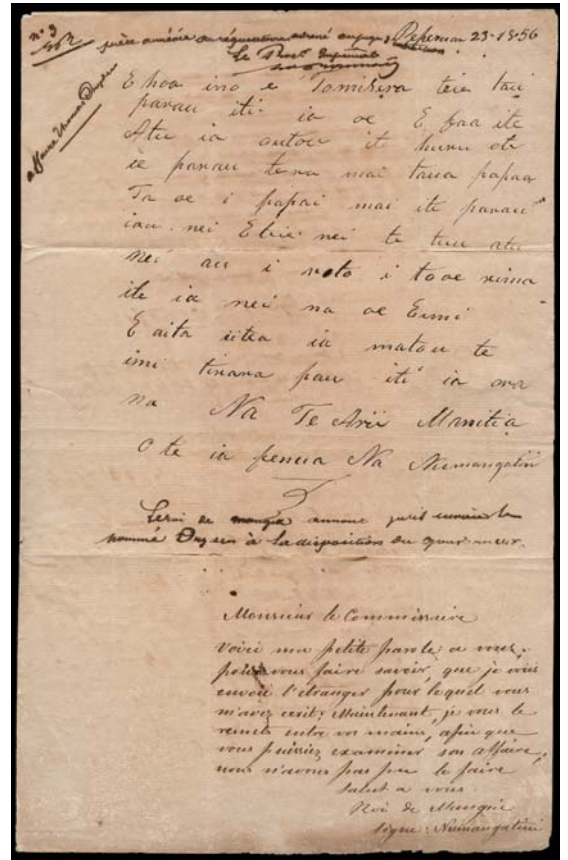 n° 3
pièce annexée au réquisitoire Peperoui 23-1856
Le Proc. Impérial
affaire Thomas
E hoa ino e Tomitera teie taii
parau iti ia oe E faa ite
Atu ia outou it huru ote
ie parau tera mai taua papaa
Ta oe i papai mai ite parau
iau nei Eteie nei te tuu atu
nei au i roto i tooe rima
ite ia nei na oe Eimi
E aita iitea ia matou te
imi tinana pau iti ia ora
na Na Te Arii Manitia
O te ia fenua Na Numangatini
Le roi de mangia annonce qu'il envoie le
nommé à la disposition du gouverneur.
Monsieur le Commissaire
Voici ma petite parole a vous,
pour vous faire savoir, que je vous
envoie l'etranger pour lequel vous
m'avez ecrit; Maintenant, je vous le
remets entre vos mains, afin que
vous puissiez examiner son affaire,
nous n'avons pas pu le faire
Salut a vous
Roi de Mangia
signe: Numangatini